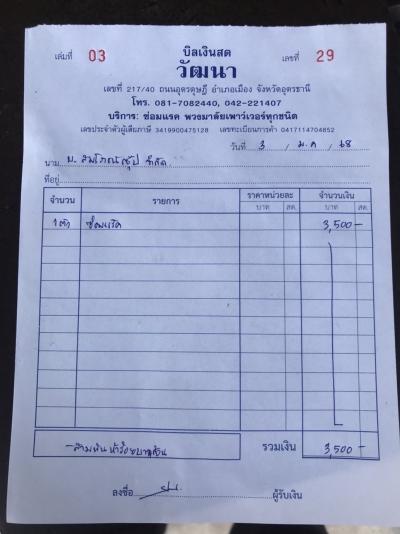 บิลเงินสด
เล่มที่ 03 เลขที่ 29
วัฒนา
เลขที่ 217/40 ถนนอุดรดุษฎี อำเภอเมือง จังหวัดอุดรธานี
โทร. 081-7082440, 042-221407
บริการ: ซ่อมแรค พวงมาลัยเพาว์เวอร์ทุกชนิด
เลขประจำตัวผู้เสียภาษี 3419900475128 เลขทะเบียนการค้า 0417114704852
วันที่ 3 / ม.ค / 68
นาม บ. จำกัด
ที่อยู่
จำนวน รายการ ราคาหน่วยละ จำนวนเงิน
บาท สต. บาท สต.
1 ตัว ซ่อมแร็ค 3,500 -
- สามพันห้าร้อยบาทถ้วน รวมเงิน 3,500 -
ลงชื่อ ผู้รับเงิน